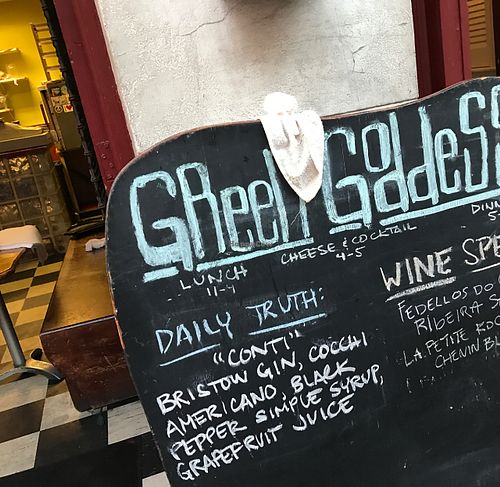 GReeN GoddeSS
LUNCH
11-4
CHEESE & COCKTAIL
4-5
DINN
5
DAILY TRUTH:
"CONTI"
BRISTOW GIN, COCCHI
AMERICANO, BLACK
PEPPER SIMPLE SYRUP,
GRAPEFRUIT JUICE
WINE SPE
FEDELLOS DO
RIBEIRA S
LA PETITE ROC
CHENIN BL